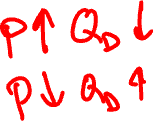 P↑ Q_D ↓
P↓ Q_D ↑